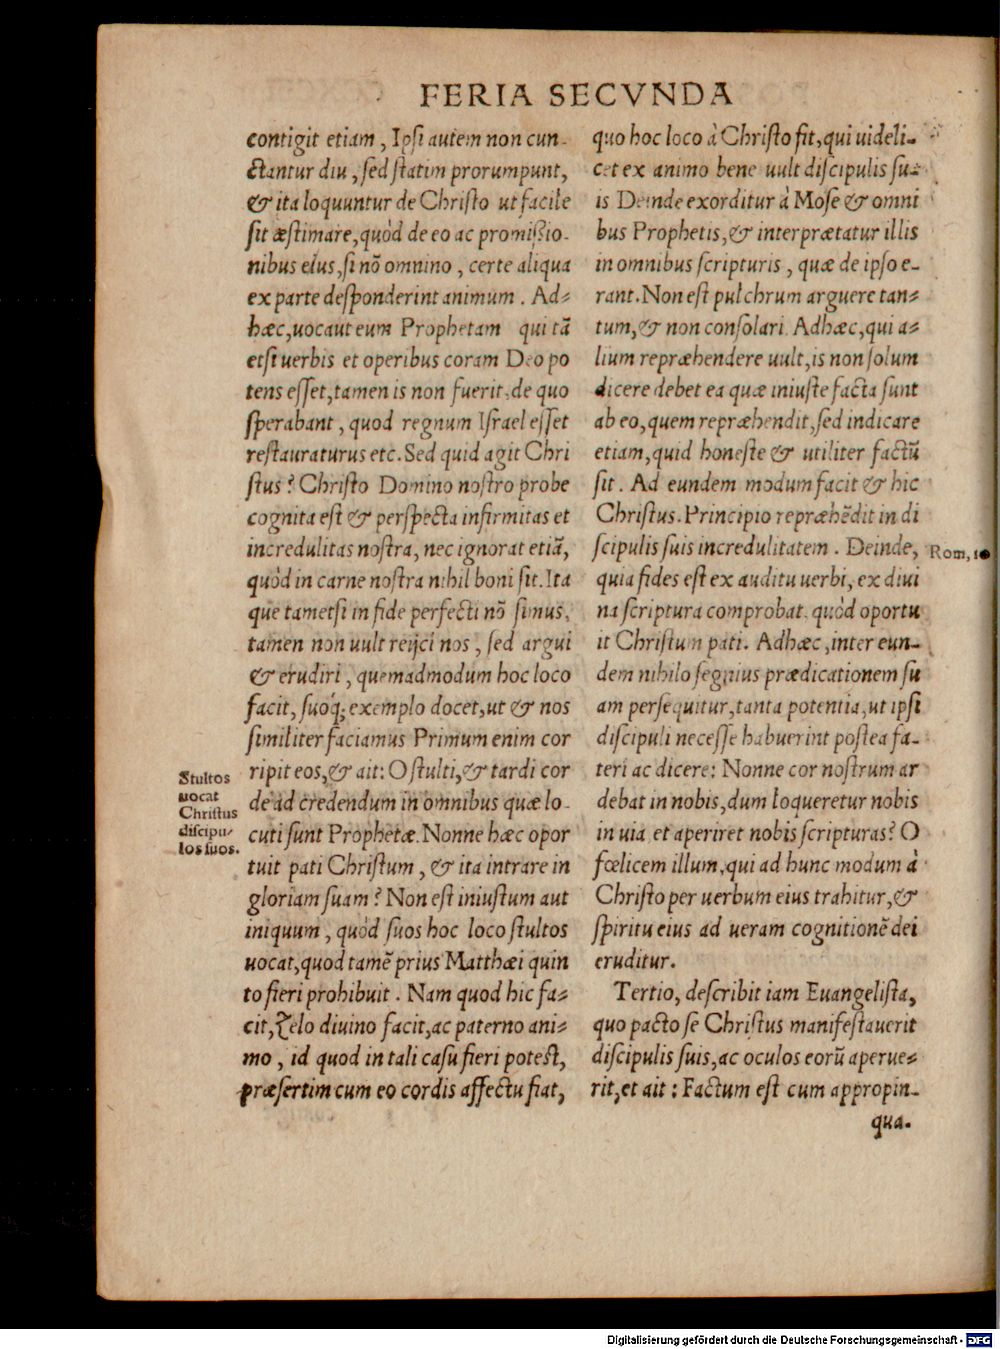 FERIA SECVNDA
contigit etiam, Ipſi autem non cun-
ctantur diu, ſed ſtatim prorumpunt,
& ita loquuntur de Chriſto ut facile
ſit æſtimare, quòd de eo ac promiſsio-
nibus eius, ſi nō omnino, certe aliqua
ex parte deſponderint animum. Ad-
hæc, uocaut eum Prophetam qui tā
etſi uerbis et operibus coram Deo po
tens eſſet, tamen is non fuerit, de quo
ſperabant, quod regnum Iſrael eſſet
reſtauraturus etc. Sed quid agit Chri
ſtus? Chriſto Domino noſtro probe
cognita eſt & perſpecta infirmitas et
incredulitas noſtra, nec ignorat etiā,
quòd in carne noſtra nihil boni ſit. Ita
que tametſi in fide perfecti nō ſimus,
tamen non uult reijci nos, ſed argui
& erudiri, quemadmodum hoc loco
facit, ſuoq́; exemplo docet, ut & nos
ſimiliter faciamus Primum enim cor
ripit eos, & ait: O ſtulti, & tardi cor
de ad credendum in omnibus quæ lo-
cuti ſunt Prophetæ. Nonne hæc opor
tuit pati Chriſtum, & ita intrare in
gloriam ſuam? Non eſt iniuſtum aut
iniquum, quòd ſuos hoc loco ſtultos
uocat, quod tamē prius Matthæi quin
to fieri prohibuit. Nam quod hic fa-
cit, Zelo diuino facit, ac paterno ani-
mo, id quod in tali caſu fieri poteſt,
præſertim cum eo cordis affectu fiat,
Stultos
uocat
Chriſtus
diſcipu-
los ſuos.
quo hoc loco à Chriſto fit, qui uideli-
cet ex animo bene uult diſcipulis ſu-
is Deinde exorditur à Moſe & omni
bus Prophetis, & interprætatur illis
in omnibus ſcripturis, quæ de ipſo e-
rant. Non eſt pulchrum arguere tan-
tum, & non conſolari. Adhæc, qui a-
lium repræhendere uult, is non ſolum
dicere debet ea quæ iniuſte facta ſunt
ab eo, quem repræhendit, ſed indicare
etiam, quid honeſte & utiliter factū
ſit. Ad eundem modum facit & hic
Chriſtus. Principio repræhēdit in di
ſcipulis ſuis incredulitatem. Deinde,
quia fides eſt ex auditu uerbi, ex diui
na ſcriptura comprobat, quòd oportu
it Chriſtum pati. Adhæc, inter eun-
dem nihilo ſegnius prædicationem ſu
am perſequitur, tanta potentia, ut ipſi
diſcipuli neceſſe habuerint poſtea fa-
teri ac dicere: Nonne cor noſtrum ar
debat in nobis, dum loqueretur nobis
in uia et aperiret nobis ſcripturas? O
fœlicem illum, qui ad hunc modum à
Chriſto per uerbum eius trahitur, &
ſpiritu eius ad ueram cognitionē dei
eruditur.
Tertio, deſcribit iam Euangeliſta,
quo pacto ſe Chriſtus manifeſtauerit
diſcipulis ſuis, ac oculos eorū aperue-
rit, et ait: Factum eſt cum appropin-
qua.
Rom, 10
Digitalisierung gefördert durch die Deutsche Forschungsgemeinschaft - DFG